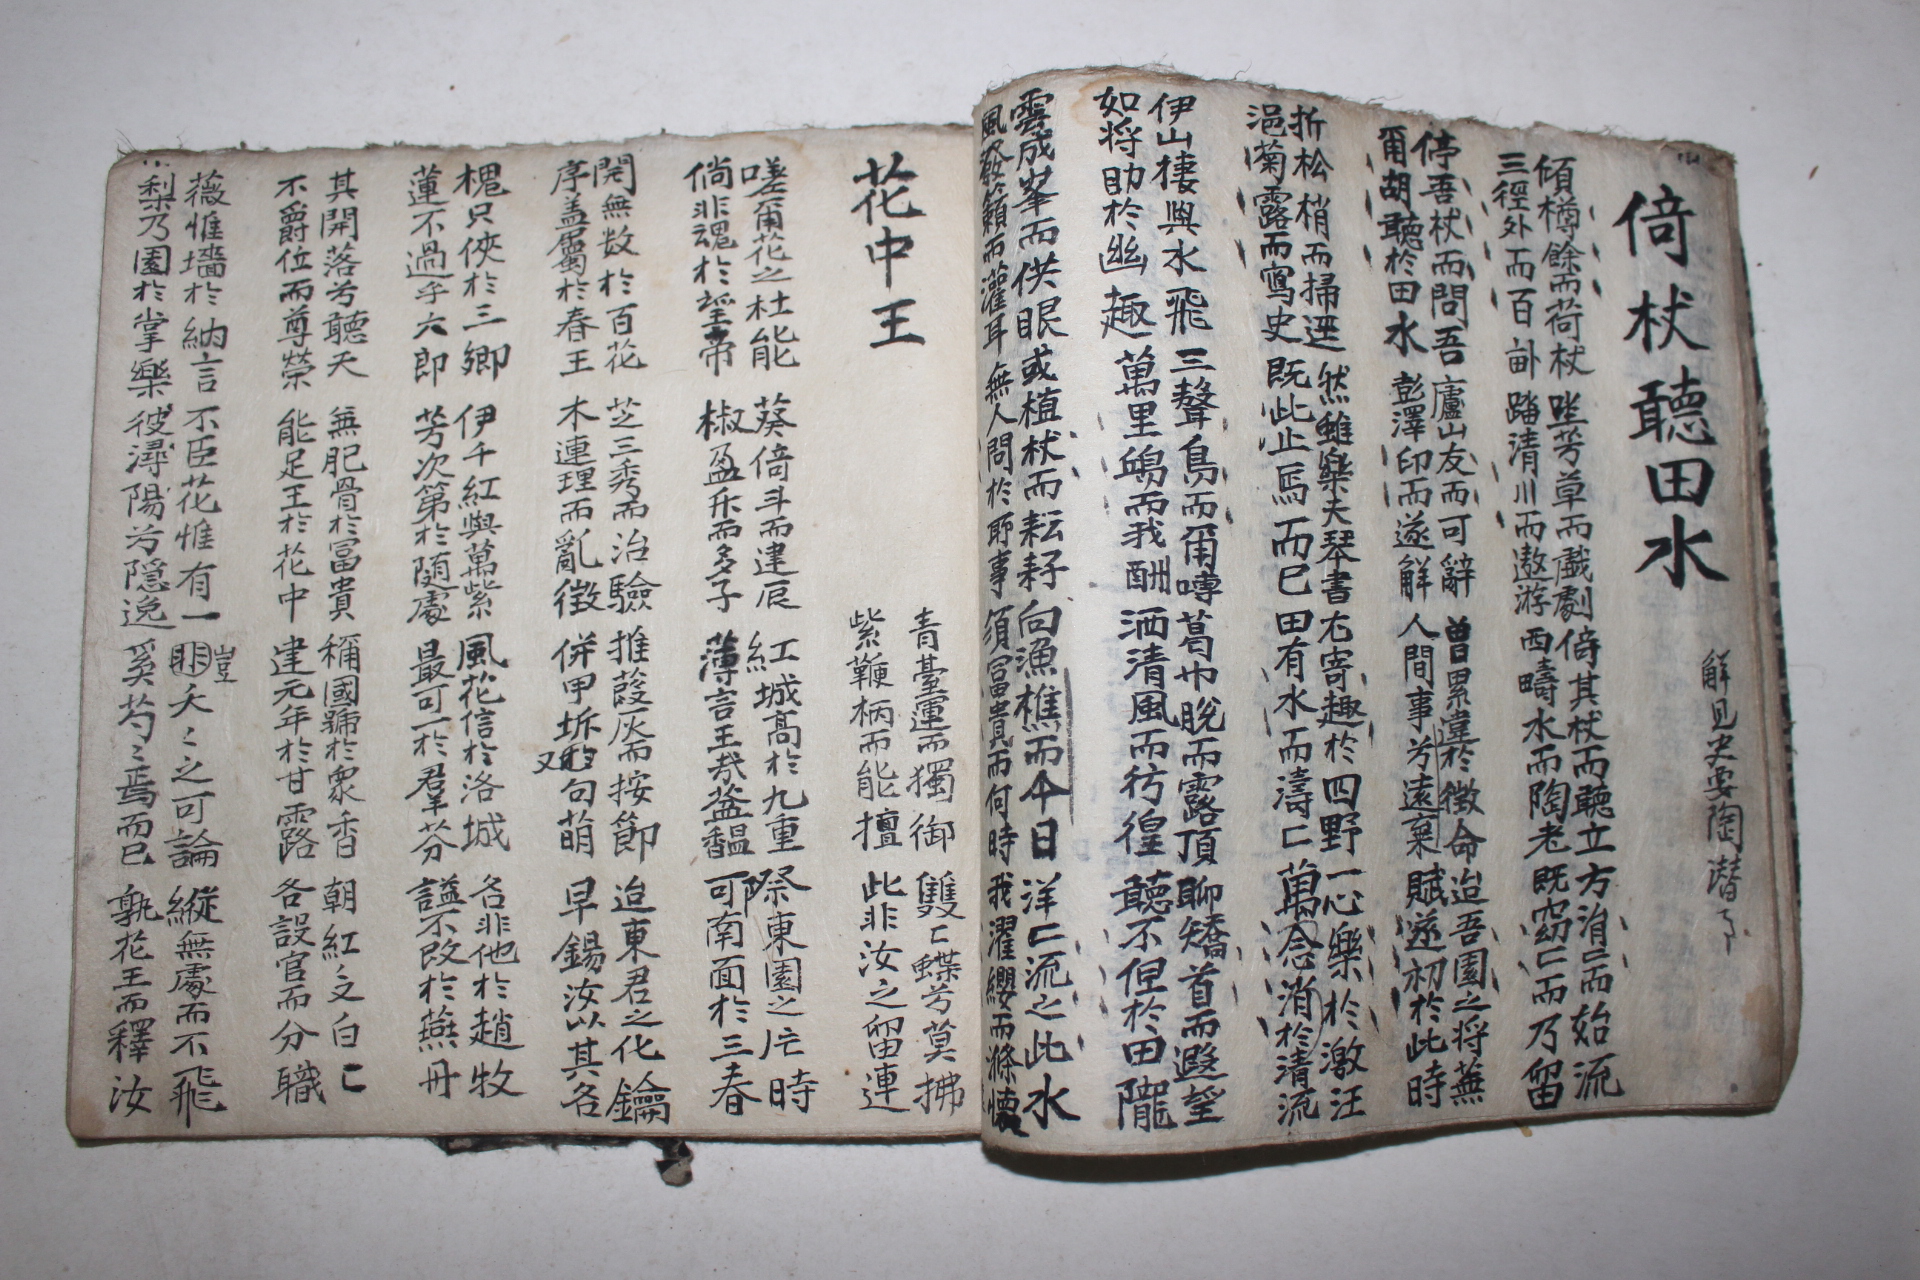 倚杖聽田水
解見史要陶潛了
傾樽餘而荷杖 坐芳草而戲劇 倚其杖而聽立 方涓〻而始流
三徑外而百畝 踏清川而遨游 西疇水而陶老 既窈〻而乃留
停吾杖而問吾 廬山友而可辭 曾累違於徵命 迨吾園之將蕪
爾胡聽於田水 彭澤印而遂解 人間事兮遠棄 賦遂初於此時
折松梢而掃逕 然雖樂夫琴書 右寄趣於四野 一心樂於激汪
浥菊露而寫史 既此止焉而已 田有水而濤〻 萬念消於清流
伊山棲與水飛 三聱鳥而爾噂 葛巾脫而露頂 聊矯首而遐望
如將助於幽趣 萬里鷗而我酬 洒清風而彷徨 聽不但於田隴
雲成峯而供眼 或植杖而耘耔 向漁樵而今日 洋〻流之此水
風發籟而灌耳 無人問於聊事 須富貴而何時 我濯纓而滌懷
花中王
青臺運而獨御 雙〻蝶兮莫拂
紫鞭柄而能擅 此非汝之留連
嗟爾花之杜能 葵倚斗而建辰 紅城高於九重 祭東園之片時
倘非魂於望帝 椒盈升而多子 薄言王哉益馧 可南面於三春
開無数於百花 芝三秀而治驗 推葭灰而按節 迨東君之化鑰
序盖屬於春王 木連理而亂徵 倂甲坼又句萌 早錫汝以其名
槐只俠於三卿 伊千紅與萬紫 風花信於洛城 名非他於趙牧
蓮不過乎六郎 芳次第於随處 最可一於羣芬 謚不改於燕丹
其開落兮聽天 無肥骨於冨貴 稱國號於衆香 朝紅〻又白〻
不爵位而尊榮 能足王於花中 建元年於甘露 各設官而分職
薇惟墻於納言 不臣花惟有一 豈 夭〻之可論 縱無處而不飛
梨乃園於掌樂 彼潯陽兮隱逸 奚芍〻焉而已 孰花王而釋汝